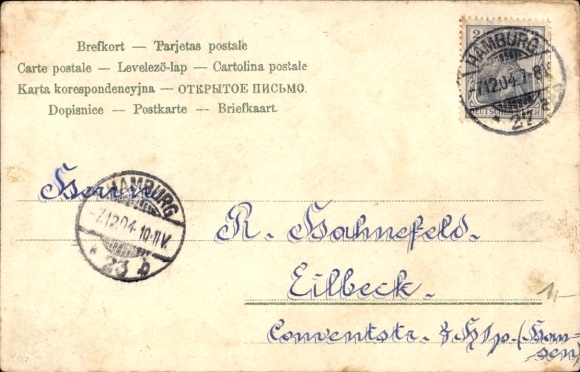 Brefkort — Tarjetas postale
Carte postale — Levelező-lap — Cartolina postale
Karta korespondencyjna — ОТКРЫТОЕ ПИСЬМО.
Dopisnice — Postkarte — Briefkaart.
2
DEUTSCHES REICH
HAMBURG
7.12.04. 7-8
* 27
Herrn
HAMBURG
7.12.04. 10-11 V.
* 23 b
R. Hahnefeld.
Eilbeck.
Conventstr. 8 Hp. (Han-
sen)